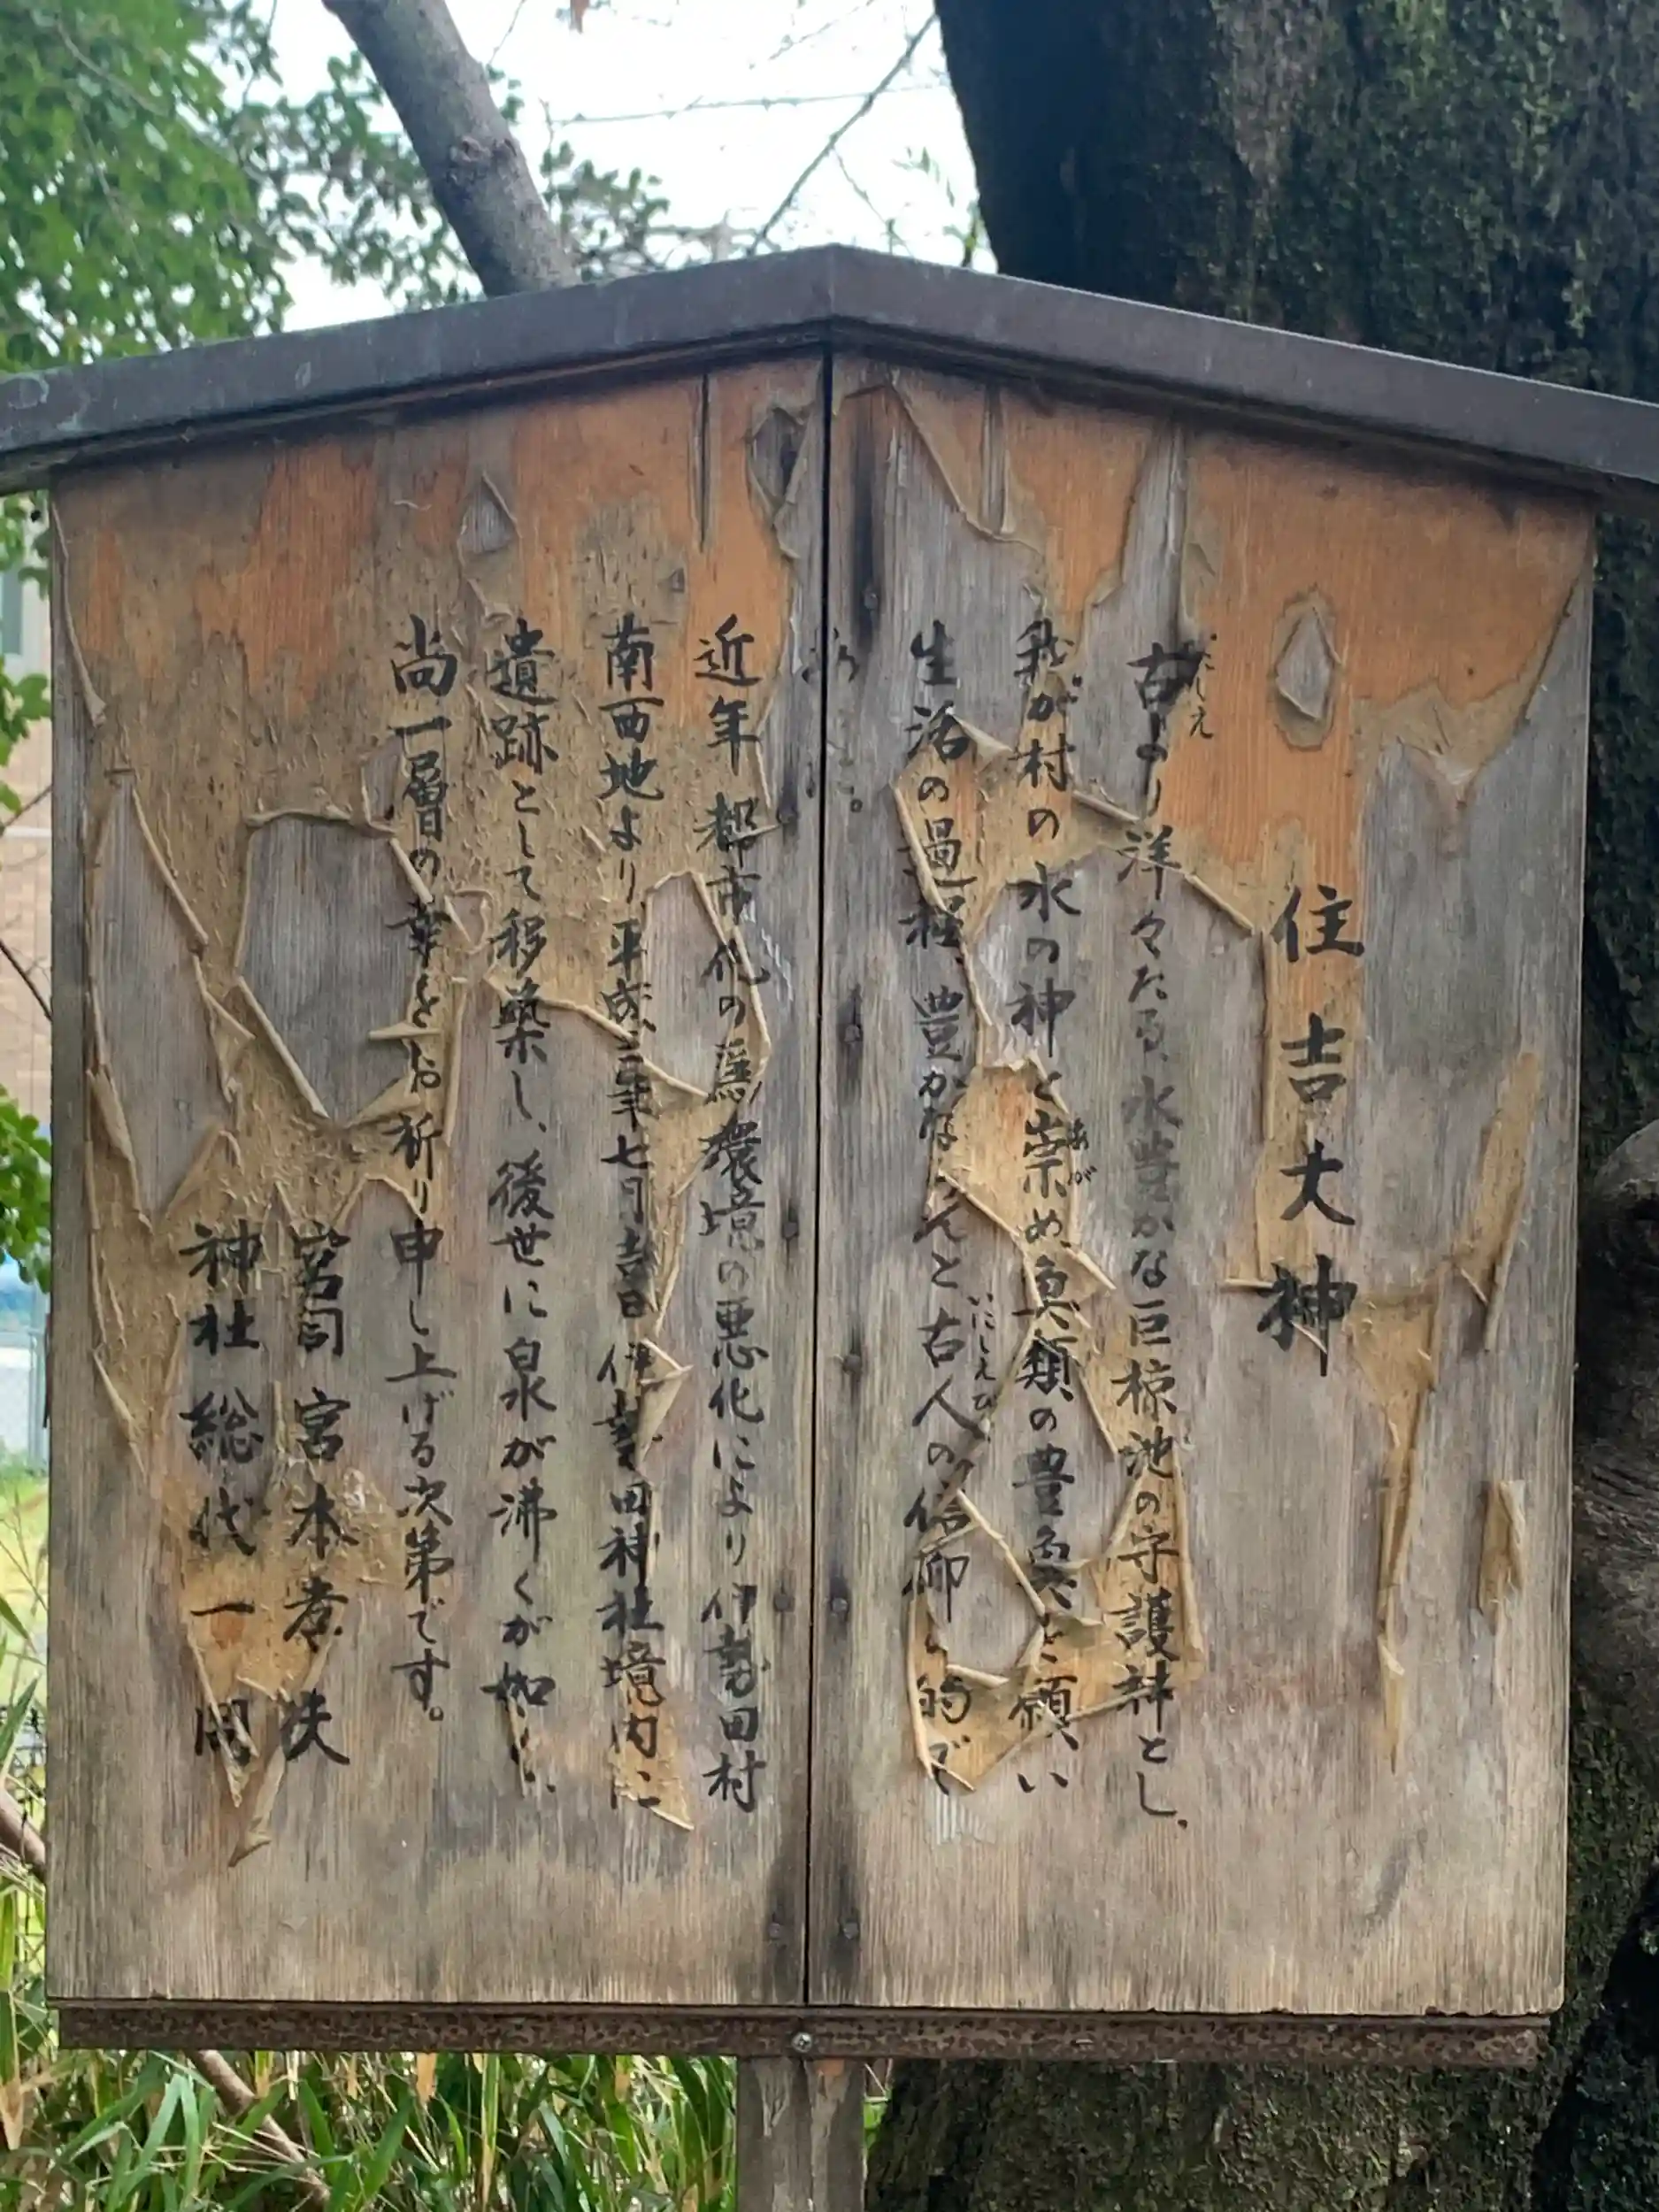 住吉大神
古より洋々たる、水豊かな巨椋池の守護神とし、
いにしえ
我が村の水の神と崇め、魚類の豊魚を願い
あが
生活の過程、豊かなれんと古人の信仰の的で
いにしえび
近年 都市化の為 環境の悪化により 伊勢田村
南西地より、平成三年七月吉日 伊勢田神社境内に
遺跡として移築し、後世に泉が沸くが如し、
尚一層の幸をお祈り申し上げる次第です。
宮司 宮本孝 
神社総代一同